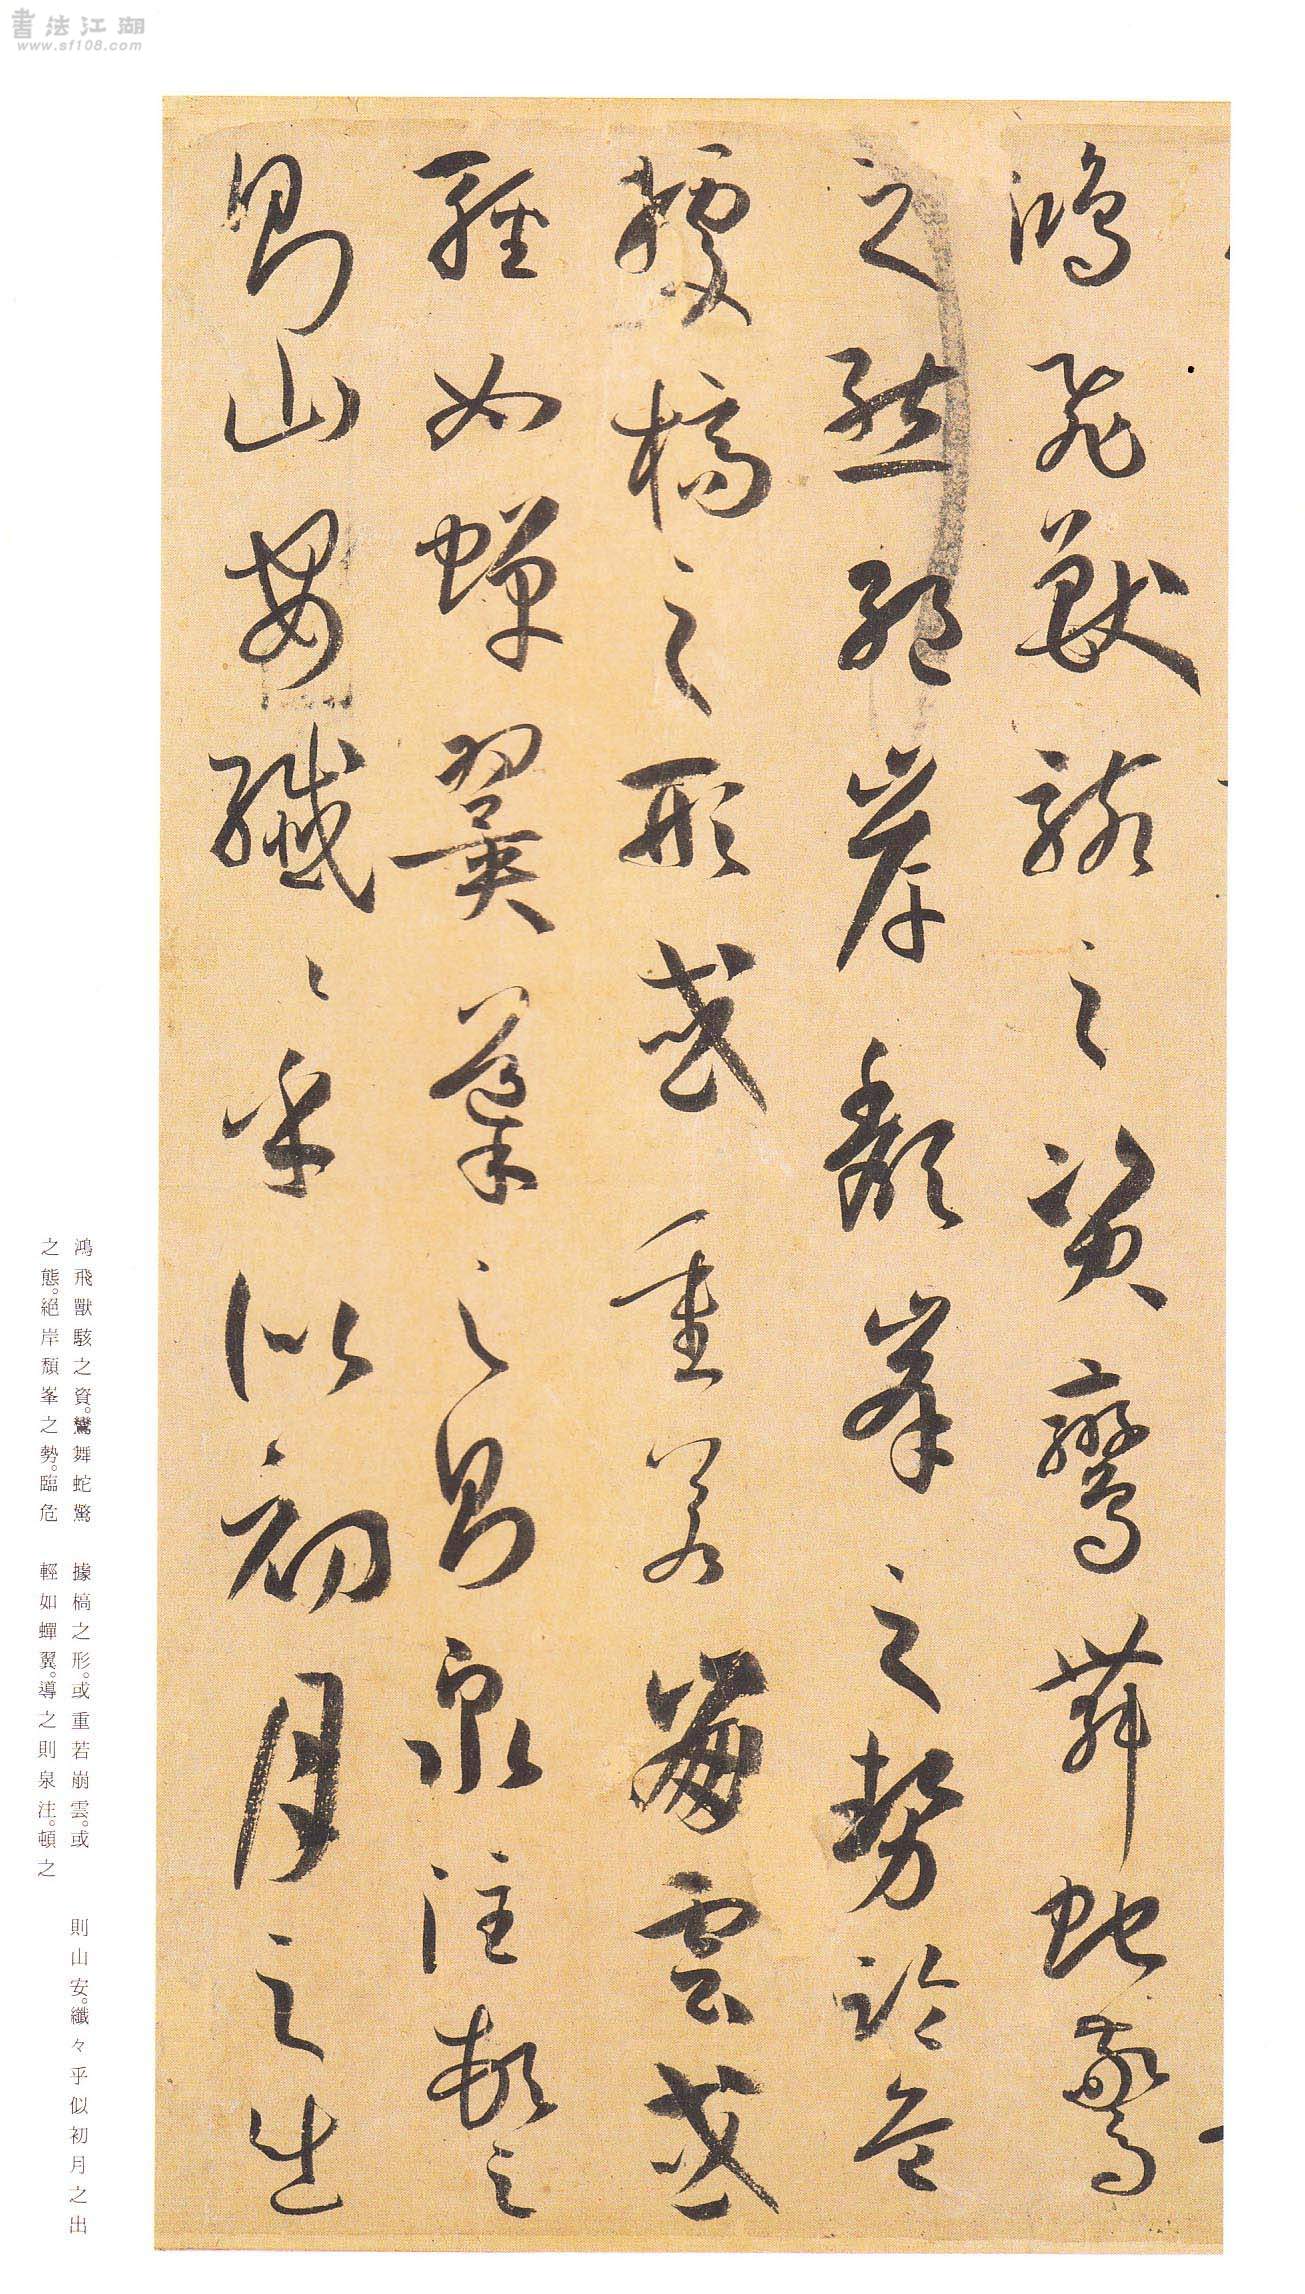 書法江湖
www.sf108.com
鴻飛獸駭之資鸞舞蛇驚
之態絕岸頹峯之勢臨危
據槁之形或重若崩雲或
輕如蟬翼導之則泉注頓之
則山安纖〻乎似初月之出
鴻飛獸駭之資。鸞舞蛇驚
之態。絕岸頹峯之勢。臨危
據槁之形。或重若崩雲。或
輕如蟬翼。導之則泉注。頓之
則山安。纖々乎似初月之出